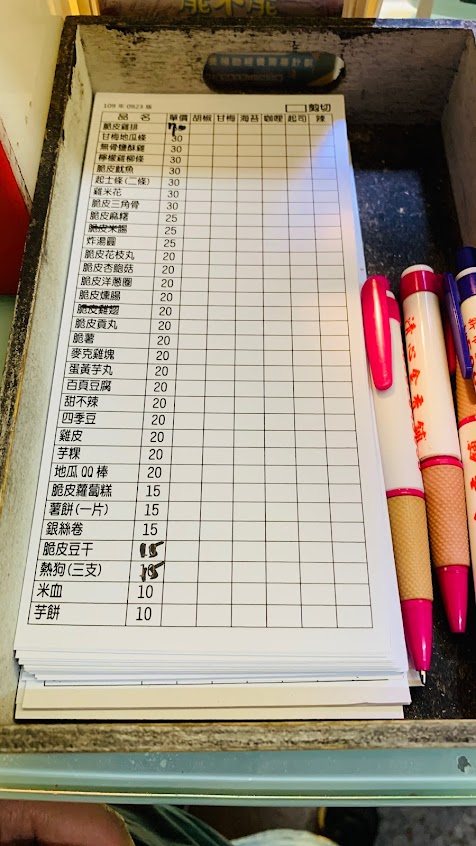 109 年 0923 版 剪切
品 名 單價 胡椒 甘梅 海苔 咖哩 起司 辣
脆皮雞排
甘梅地瓜條 30
無骨鹽酥雞 30
檸檬雞柳條 30
脆皮魷魚 30
起士條(二條) 30
雞米花 30
脆皮三角骨 30
脆皮麻糬 25
脆皮米腸 25
炸湯圓 25
脆皮花枝丸 20
脆皮杏鮑菇 20
脆皮洋蔥圈 20
脆皮燻腸 20
脆皮雞翅 20
脆皮貢丸 20
脆薯 20
麥克雞塊 20
蛋黃芋丸 20
百頁豆腐 20
甜不辣 20
四季豆 20
雞皮 20
芋粿 20
地瓜QQ棒 20
脆皮蘿蔔糕 15
薯餅(一片) 15
銀絲卷 15
脆皮豆干 15
熱狗(三支) 15
米血 10
芋餅 10